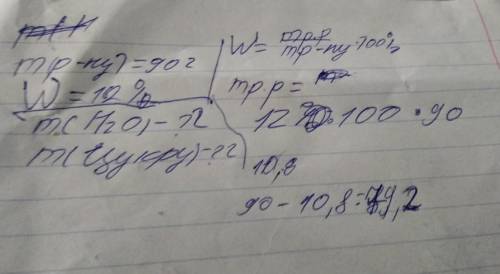 m(р-ну)=90г
W=12%
m(H₂O)-?г
m(цукру)-?г
W= mр.р / mр-ну ·100%
mр.р =
12% : 100 · 90
10,8
90-10,8=79,2